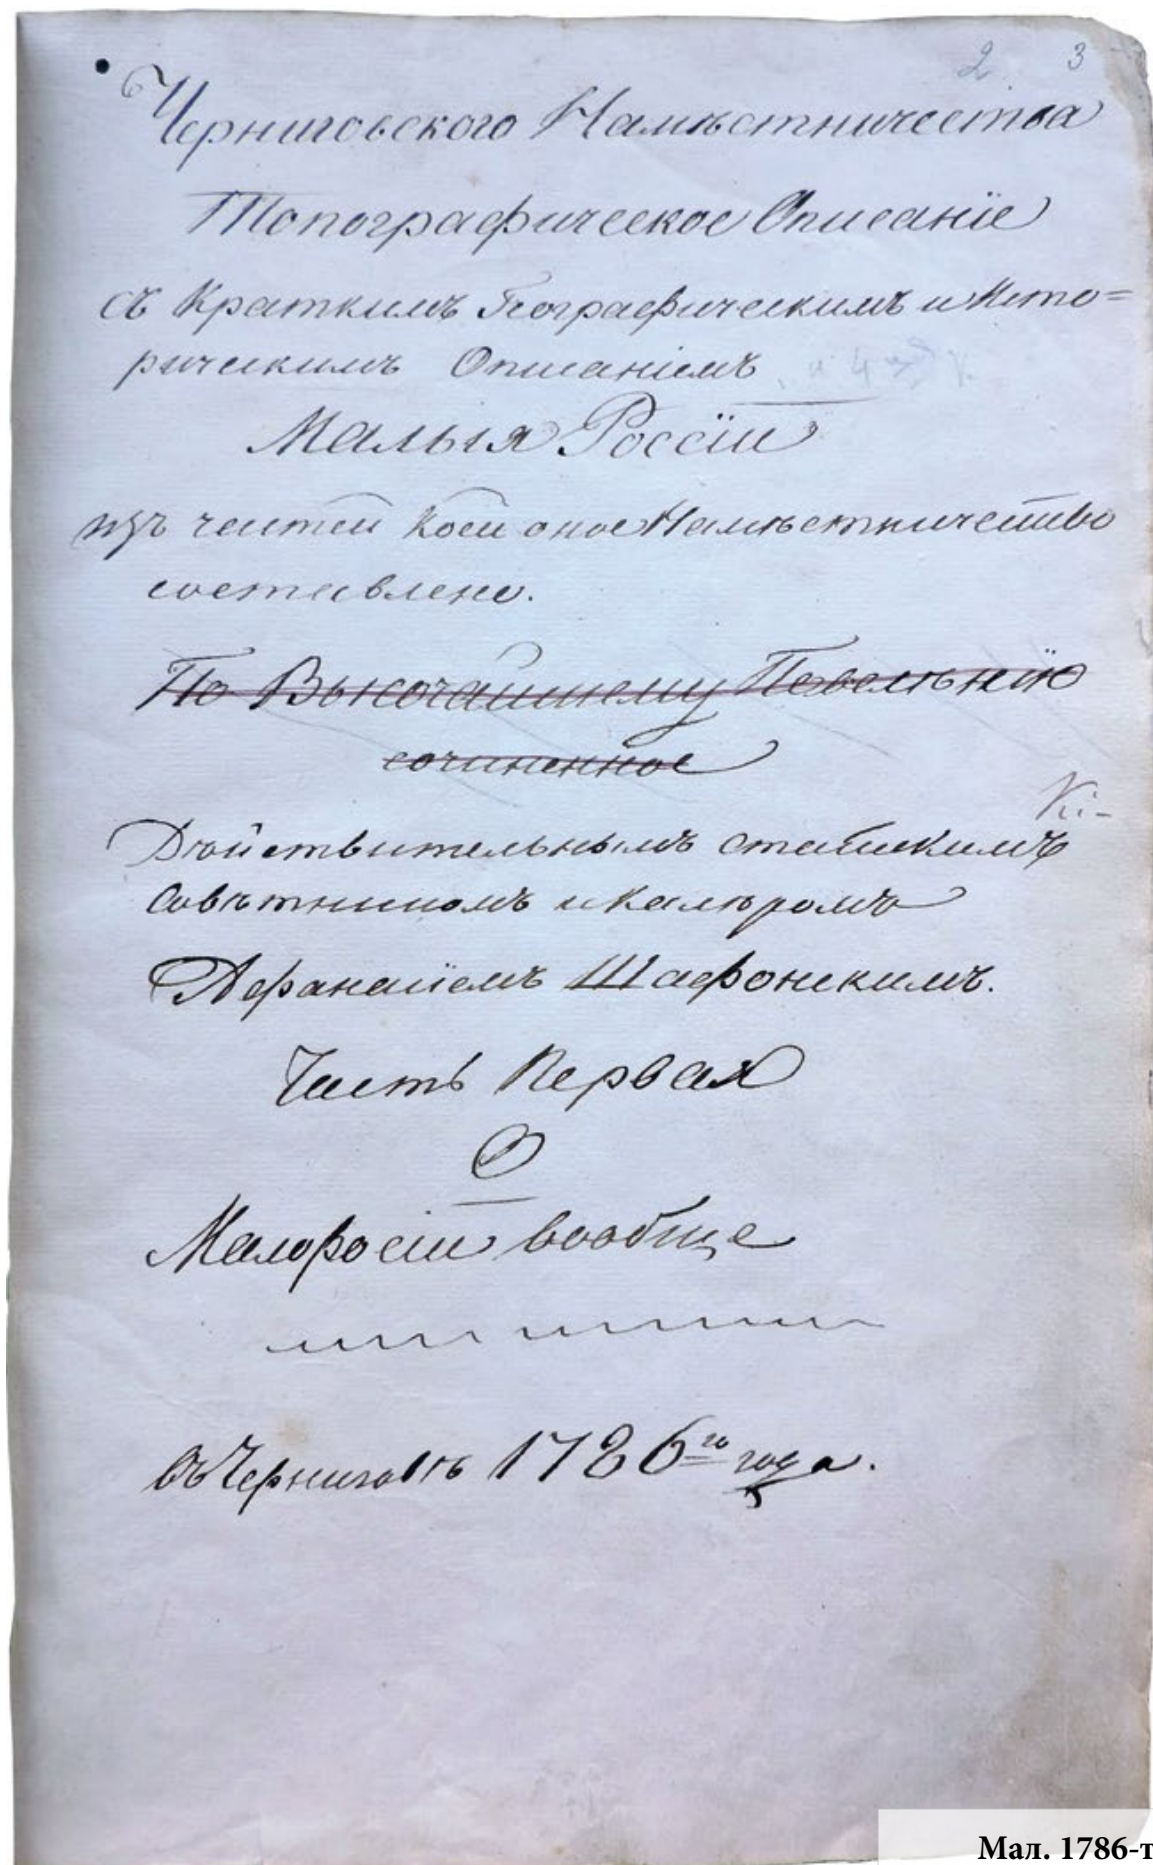 2 3
Черниговского Намѣстничества
Топографическое Описанïе
съ Краткимъ Географическимъ и Исто=
рическимъ Описанïемъ
Малыя Россïи
изъ частей коей оное Намѣстничество
составлено.
По Высочайшему Повелѣнïю
сочиненное
Дѣйствительнымъ статскимъ
Совѣтникомъ и Кавалеромъ
Афанасïемъ Шафонскимъ.
Часть Первая
О
Малоросïи вообще
въ Черниговѣ 1786го года.
Мал. 1786-т